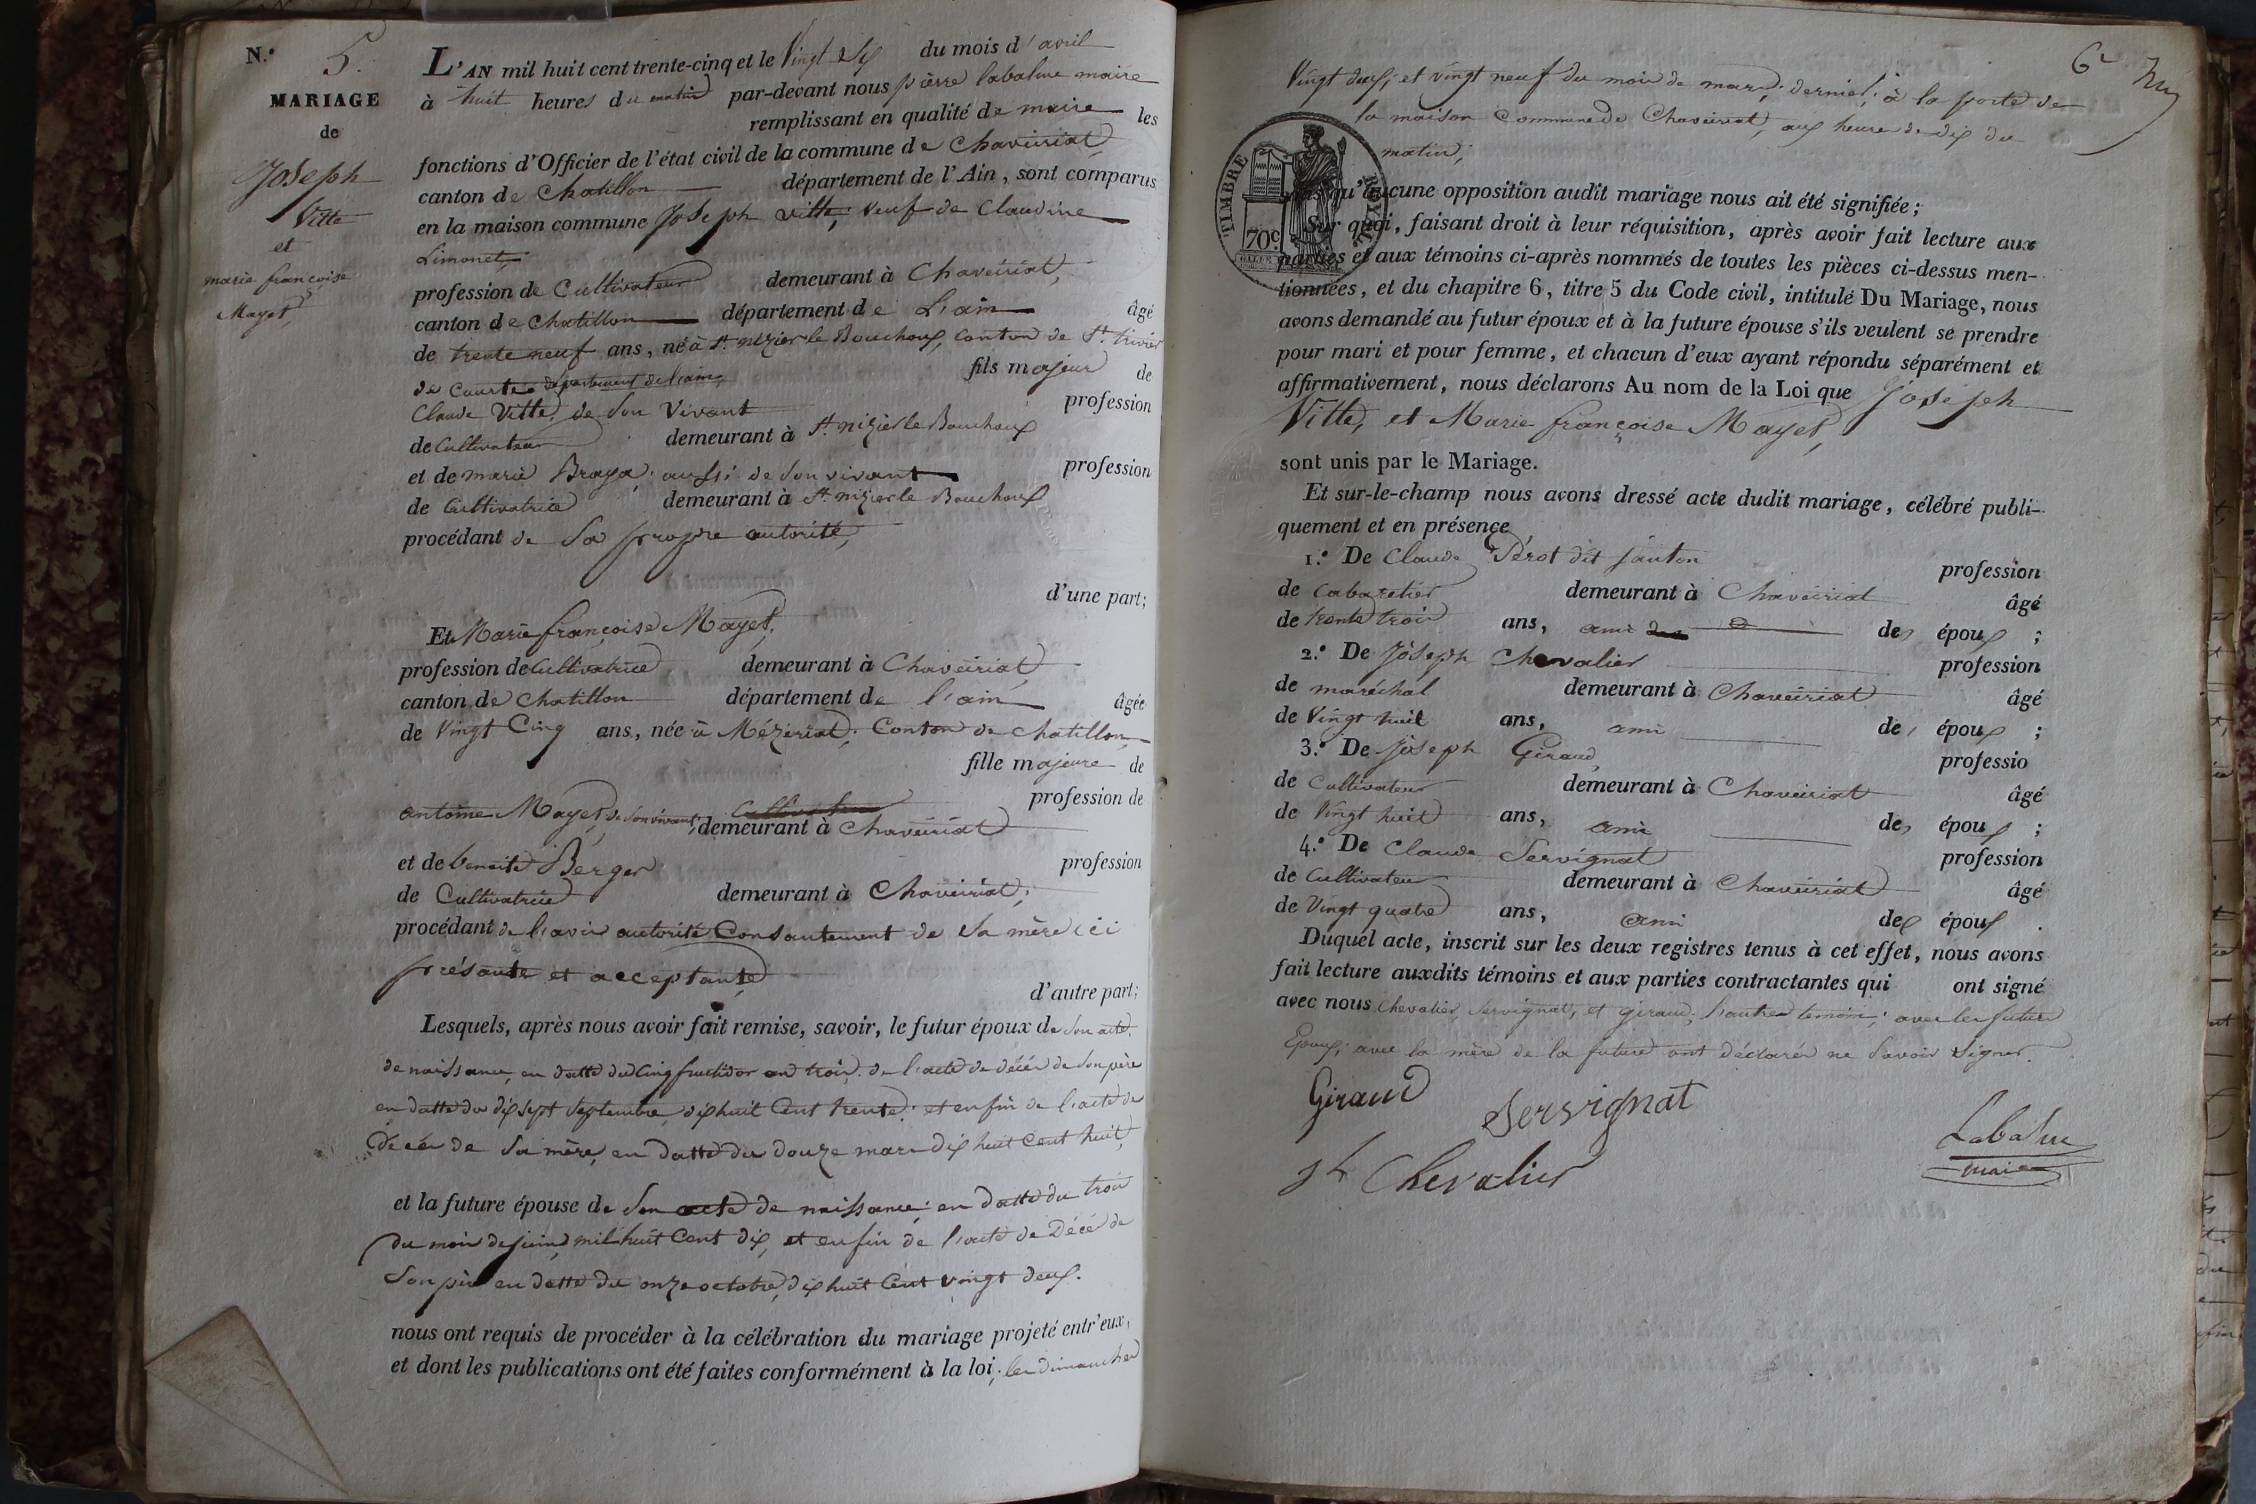 N.º 5.
MARIAGE
de
Joseph
Vitte
et
marie françoise
Mayet,
L'AN mil huit cent trente-cinq et le Vingt six du mois d'avril
à huit heures du matin par-devant nous pierre labalme maire
remplissant en qualité de maire les
fonctions d'Officier de l'état civil de la commune de Chaveiriat,
canton de Chatillon département de l'Ain, sont comparus
en la maison commune Joseph vitte, veuf de Claudine
Limonet,
profession de Cultivateur demeurant à Chaveiriat,
canton de Chatillon département de L'ain âgé
de trente neuf ans, né à St. nizier le Bouchoux, canton de St. trivier
de Courtes département de l'ain, fils majeur de
Claude Vitte, de son Vivant profession
de Cultivateur demeurant à St. nizier le Bouchoux
et de marie Braya, aussi de son vivant profession
de Cultivatrice demeurant à St. nizier le Bouchoux
procédant de Sa propre autorité,
d'une part;
Et Marie françoise Mayet,
profession de Cultivatrice demeurant à Chaveiriat,
canton de Chatillon département de l'ain âgée
de Vingt Cinq ans, née à Mézériat, Canton de Chatillon,
fille majeure de
antoine Mayet, de son vivant, Cultivateur profession de
demeurant à Chaveiriat
et de benoite Berger profession
de Cultivatrice demeurant à Chaveiriat,
procédant de l'avis autorité Consantement de Sa mère ici
présante et acceptante
d'autre part;
Lesquels, après nous avoir fait remise, savoir, le futur époux de Son acte
de naissance, en datte du Cinq fructidor an trois, de l'acte de décés de Son père
en datte du dix sept Septembre, dix huit Cent trente, et enfin de l'acte de
décés de Sa mère, en datte du douze mars dix huit Cent huit,
et la future épouse de Son acte de naissance, en datte du trois
du mois de juin, mil huit Cent dix, et enfin de l'acte de Décé de
Son père en datte du onze octobre, dix huit Cent vingt deux.
nous ont requis de procéder à la célébration du mariage projeté entr'eux,
et dont les publications ont été faites conformément à la loi, les dimanches
6e
Vingt deux, et vingt neuf du mois de mars, dernier, à la porte de
la maison Commune de Chaveiriat, aux heure de dix du
matin,
TIMBRE ROYAL
70c
qu'aucune opposition audit mariage nous ait été signifiée;
Sur quoi, faisant droit à leur réquisition, après avoir fait lecture aux
parties et aux témoins ci-après nommés de toutes les pièces ci-dessus men-
tionnées, et du chapitre 6, titre 5 du Code civil, intitulé Du Mariage, nous
avons demandé au futur époux et à la future épouse s'ils veulent se prendre
pour mari et pour femme, et chacun d'eux ayant répondu séparément et
affirmativement, nous déclarons Au nom de la Loi que Joseph
Vitte, et Marie françoise Mayet,
sont unis par le Mariage.
Et sur-le-champ nous avons dressé acte dudit mariage, célébré publi-
quement et en présence
1.º De Claude Pérot dit Janton profession
de Cabaretier demeurant à Chaveiriat âgé
de trente trois ans, ami des époux;
2.º De Joseph Chevalier profession
de maréchal demeurant à Chaveiriat âgé
de Vingt huit ans, ami des époux;
3.º De Joseph Giraud, professio
de Cultivateur demeurant à Chaveiriat âgé
de Vingt huit ans, ami des époux;
4.º De Claude Servignat profession
de Cultivateur demeurant à Chaveiriat âgé
de Vingt quatre ans, ami des époux.
Duquel acte, inscrit sur les deux registres tenus à cet effet, nous avons
fait lecture auxdits témoins et aux parties contractantes qui ont signé
avec nous Chevalier, Servignat, et giraud, l'autre témoin, avec les futurs
Epoux, avec la mère de la future ont déclarés ne Savoir Signer.
Giraud
Servignat
Labalme
maire
Jh Chevalier